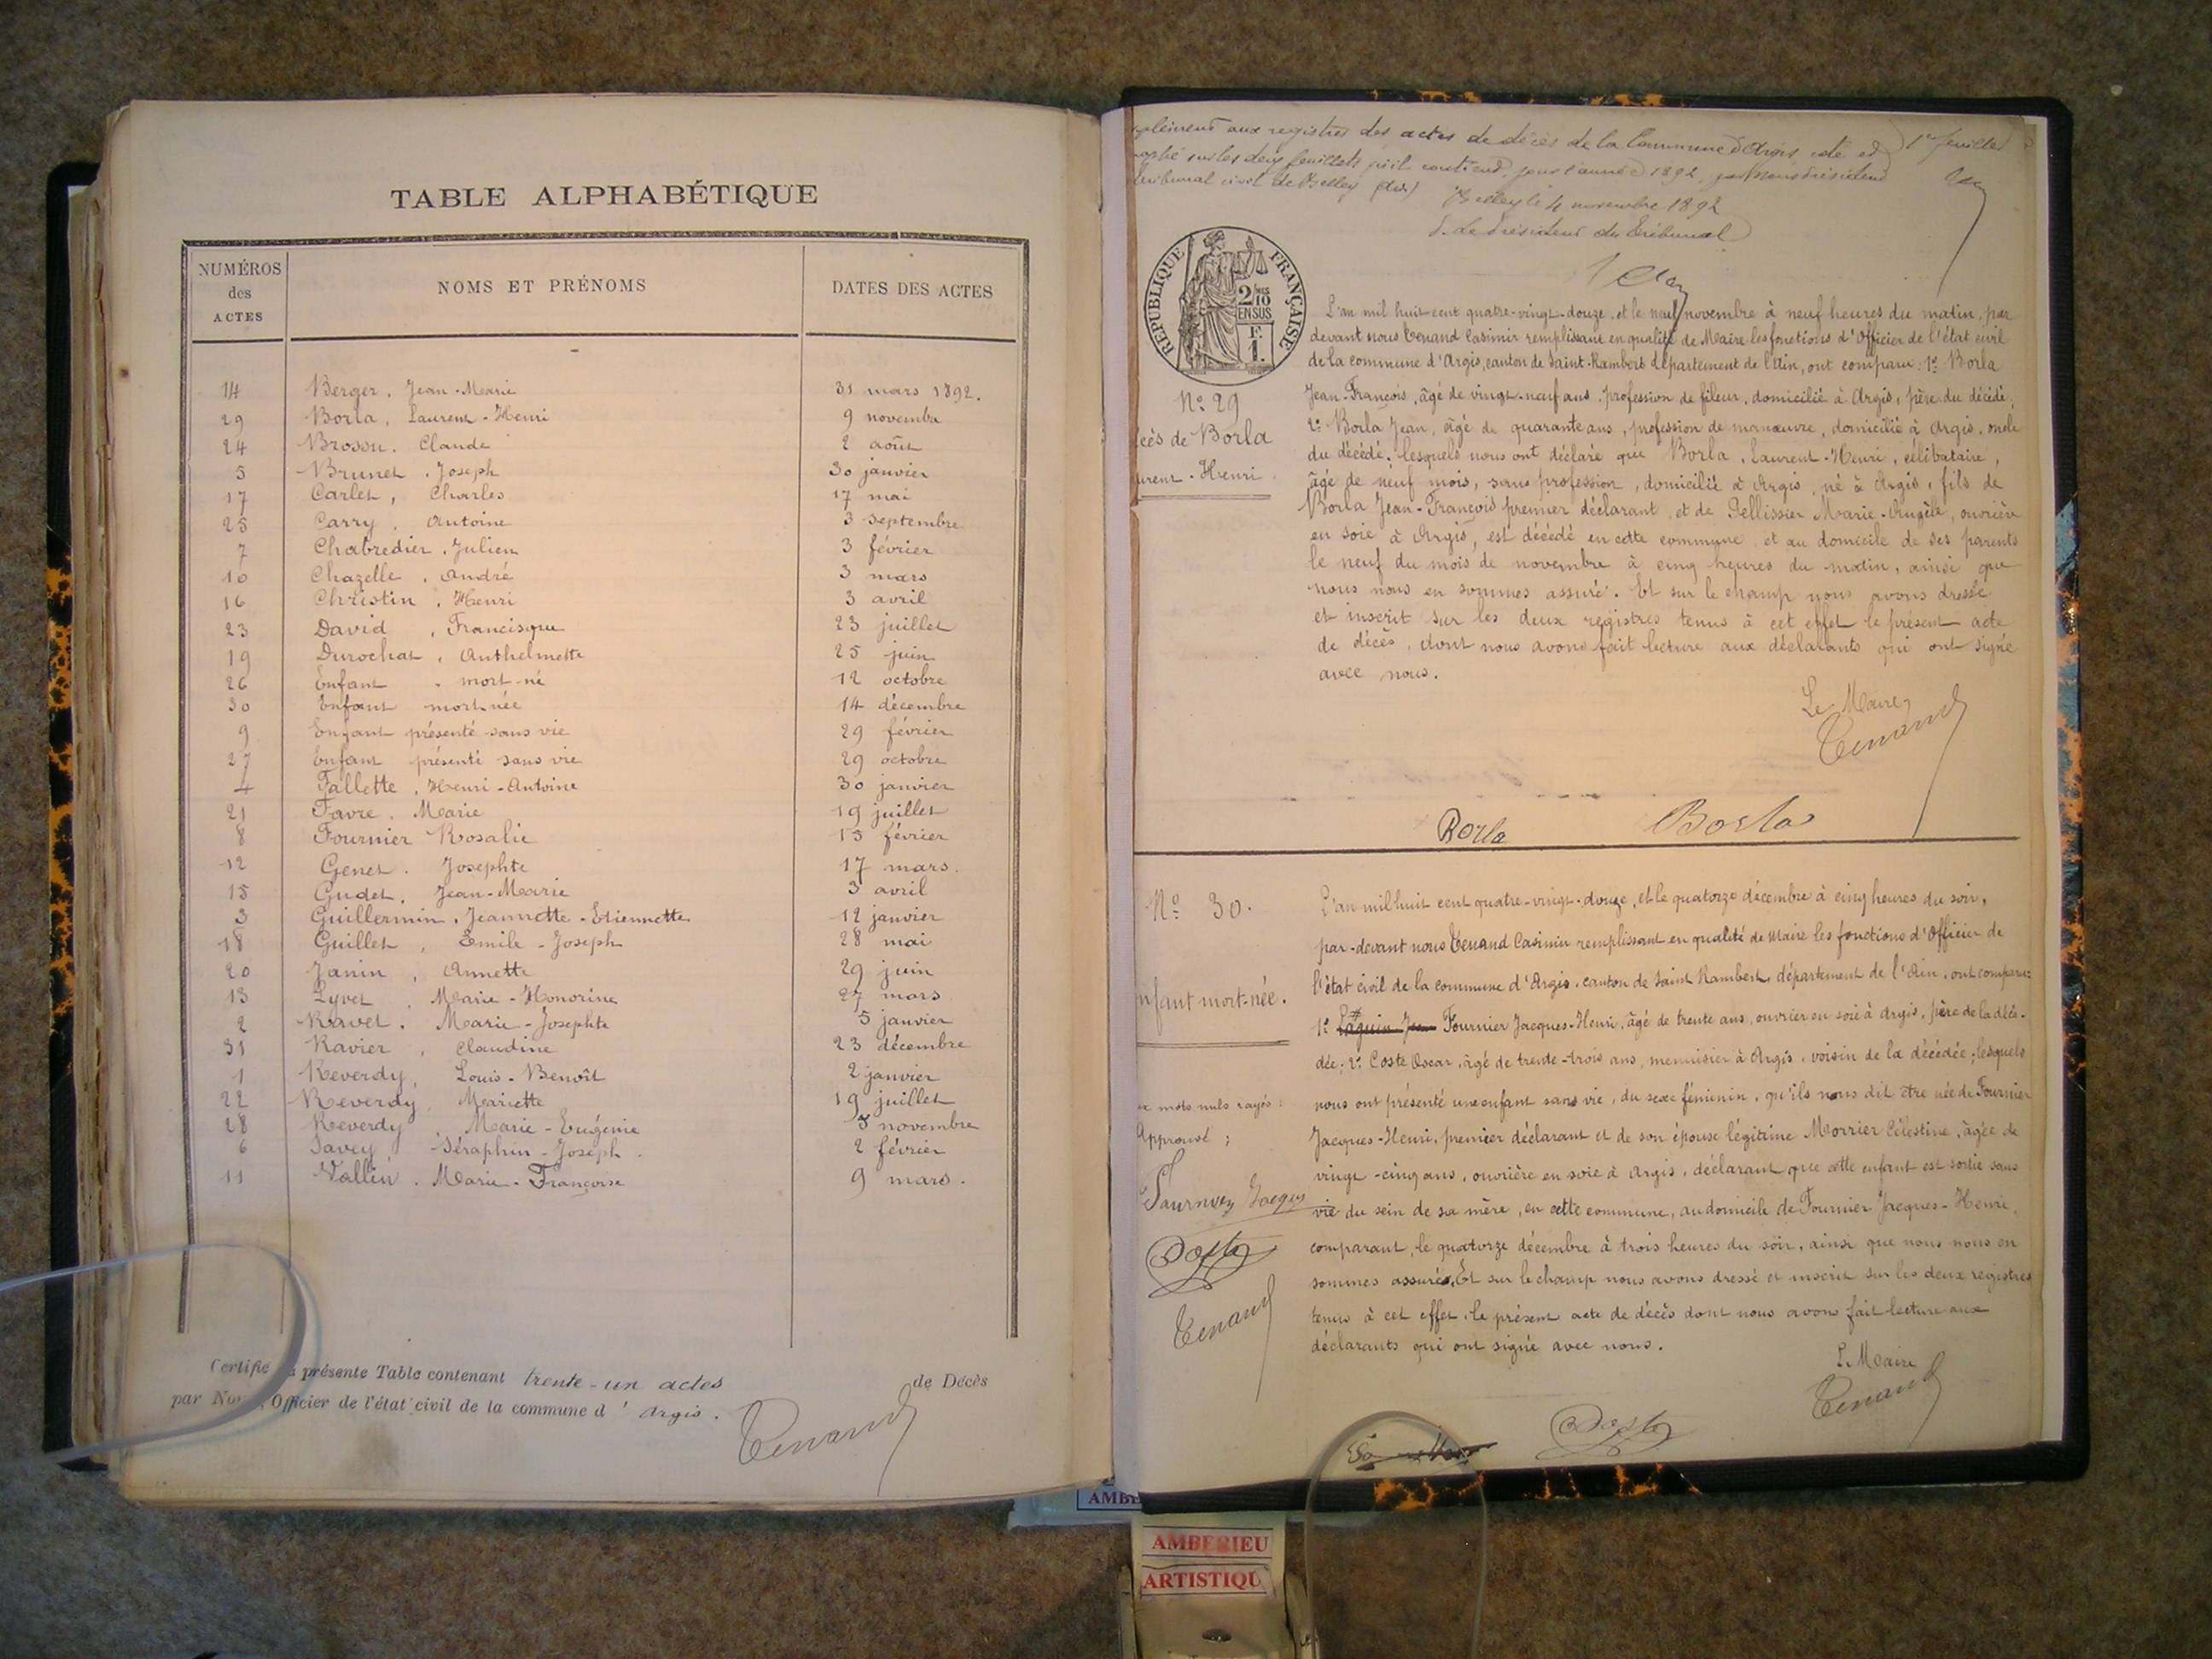 TABLE ALPHABÉTIQUE
NUMÉROS des ACTES NOMS ET PRÉNOMS DATES DES ACTES
14 Berger, Jean-Marie 31 mars 1892.
29 Borla, Laurent-Henri 9 novembre
24 Brosson. Claude 2 août
5 Brunet, Joseph 30 janvier
17 Carlet, Charles 17 mai
25 Carry, Antoine 3 septembre
7 Chabredier, Julien 3 février
10 Chazelle, André 3 mars
16 Christin, Henri 3 avril
23 David, Francisque 23 juillet
19 Durochat, Anthelmette 25 juin
26 Enfant mort-né 12 octobre
30 Enfant mort-née 14 décembre
9 Enfant présenté sans vie 29 février
27 Enfant présenté sans vie 29 octobre
4 Fallette, Henri-Antoine 30 janvier
21 Favre. Marie 19 juillet
8 Fournier Rosalie 13 février
12 Genet. Josephte 17 mars.
15 Gudet, Jean-Marie 3 avril
3 Guillermin, Jeannette-Etiennette 12 janvier
18 Guillet, Emile-Joseph 28 mai
20 Janin, Annette 29 juin
13 Lyvet, Marie-Honorine 27 mars
2 Ravet. Marie-Josephte 5 janvier
31 Ravier, Claudine 23 décembre
1 Reverdy, Louis-Benoît 2 janvier
22 Reverdy, Mariette 19 juillet
28 Reverdy, Marie-Eugénie 5 novembre
6 Savey Séraphin-Joseph. 2 février
11 Vallin. Marie-Françoise 9 mars.
Certifié présente Table contenant trente-un actes de Décès
par Officier de l'état civil de la commune d'Argis.
Tenand
aux registres des actes de décès de la Commune d'Argis, coté et 1er feuillet
sur les deux feuillets qu'il contient, pour l'année 1892, par Nous Président
tribunal civil de Belley (Ain)
Belley le 4 novembre 1892
Le Président du Tribunal
RÉPUBLIQUE FRANÇAISE
2/10 EN SUS
F. 1.
L'an mil huit cent quatre-vingt-douze, et le neuf novembre à neuf heures du matin, par
devant nous Tenand Casimir remplissant en qualité de Maire les fonctions d'Officier de l'état civil
de la commune d'Argis, canton de Saint-Rambert département de l'Ain, ont comparu: 1º Borla
Jean-François, âgé de vingt-neuf ans, profession de fileur, domicilié à Argis, père du décédé;
2º Borla Jean, âgé de quarante ans, profession de manœuvre, domicilié à Argis, oncle
du décédé; lesquels nous ont déclaré que Borla, Laurent-Henri, célibataire,
âgé de neuf mois, sans profession, domicilié à Argis, né à Argis, fils de
Borla Jean-François premier déclarant, et de Pellissier Marie-Angèle, ouvrière
en soie à Argis, est décédé en cette commune, et au domicile de ses parents
le neuf du mois de novembre à cinq heures du matin, ainsi que
nous nous en sommes assuré. Et sur le champ nous avons dressé
et inscrit sur les deux registres tenus à cet effet le présent acte
de décès, dont nous avons fait lecture aux déclarants qui ont signé
avec nous.
Nº 29
de Borla
Henri.
Le Maire,
Tenand
Borla Borla
Nº 30.
mort-née.
L'an mil huit cent quatre-vingt-douze, et le quatorze décembre à cinq heures du soir,
par-devant nous Tenand Casimir remplissant en qualité de Maire les fonctions d'Officier de
l'état civil de la commune d'Argis, canton de Saint Rambert, département de l'Ain, ont comparu:
1º Fournier Jacques-Henri, âgé de trente ans, ouvrier en soie à Argis, père de la décé-
dée; 2º Coste Oscar, âgé de trente-trois ans, menuisier à Argis, voisin de la décédée; lesquels
nous ont présenté une enfant sans vie, du sexe féminin, qu'ils nous dit être née de Fournier
Jacques-Henri, premier déclarant et de son épouse légitime Morrier Célestine, âgée de
vingt-cinq ans, ouvrière en soie à Argis, déclarant que cette enfant est sortie sans
vie du sein de sa mère, en cette commune, au domicile de Fournier Jacques-Henri,
comparant, le quatorze décembre à trois heures du soir, ainsi que nous nous en
sommes assurés. Et sur le champ nous avons dressé et inscrit sur les deux registres
tenus à cet effet, le présent acte de décès dont nous avons fait lecture aux
déclarants qui ont signé avec nous.
mots nuls rayés:
Approuvé:
Tenand
Le Maire
Tenand
AMBERIEU
ARTISTIQU